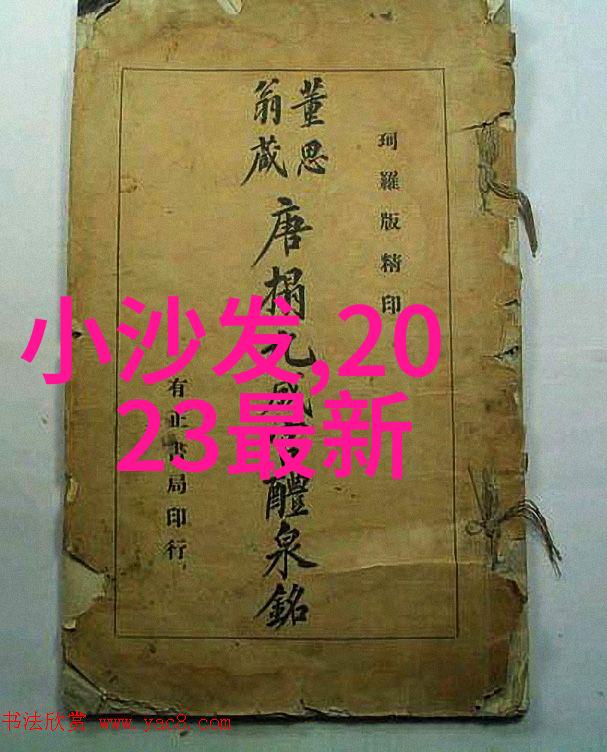 珂羅版精印
董思
翁藏
唐搨九成醴泉銘
有正書局印行
小沙发,20
23最新
书法欣赏 www.yac8.com